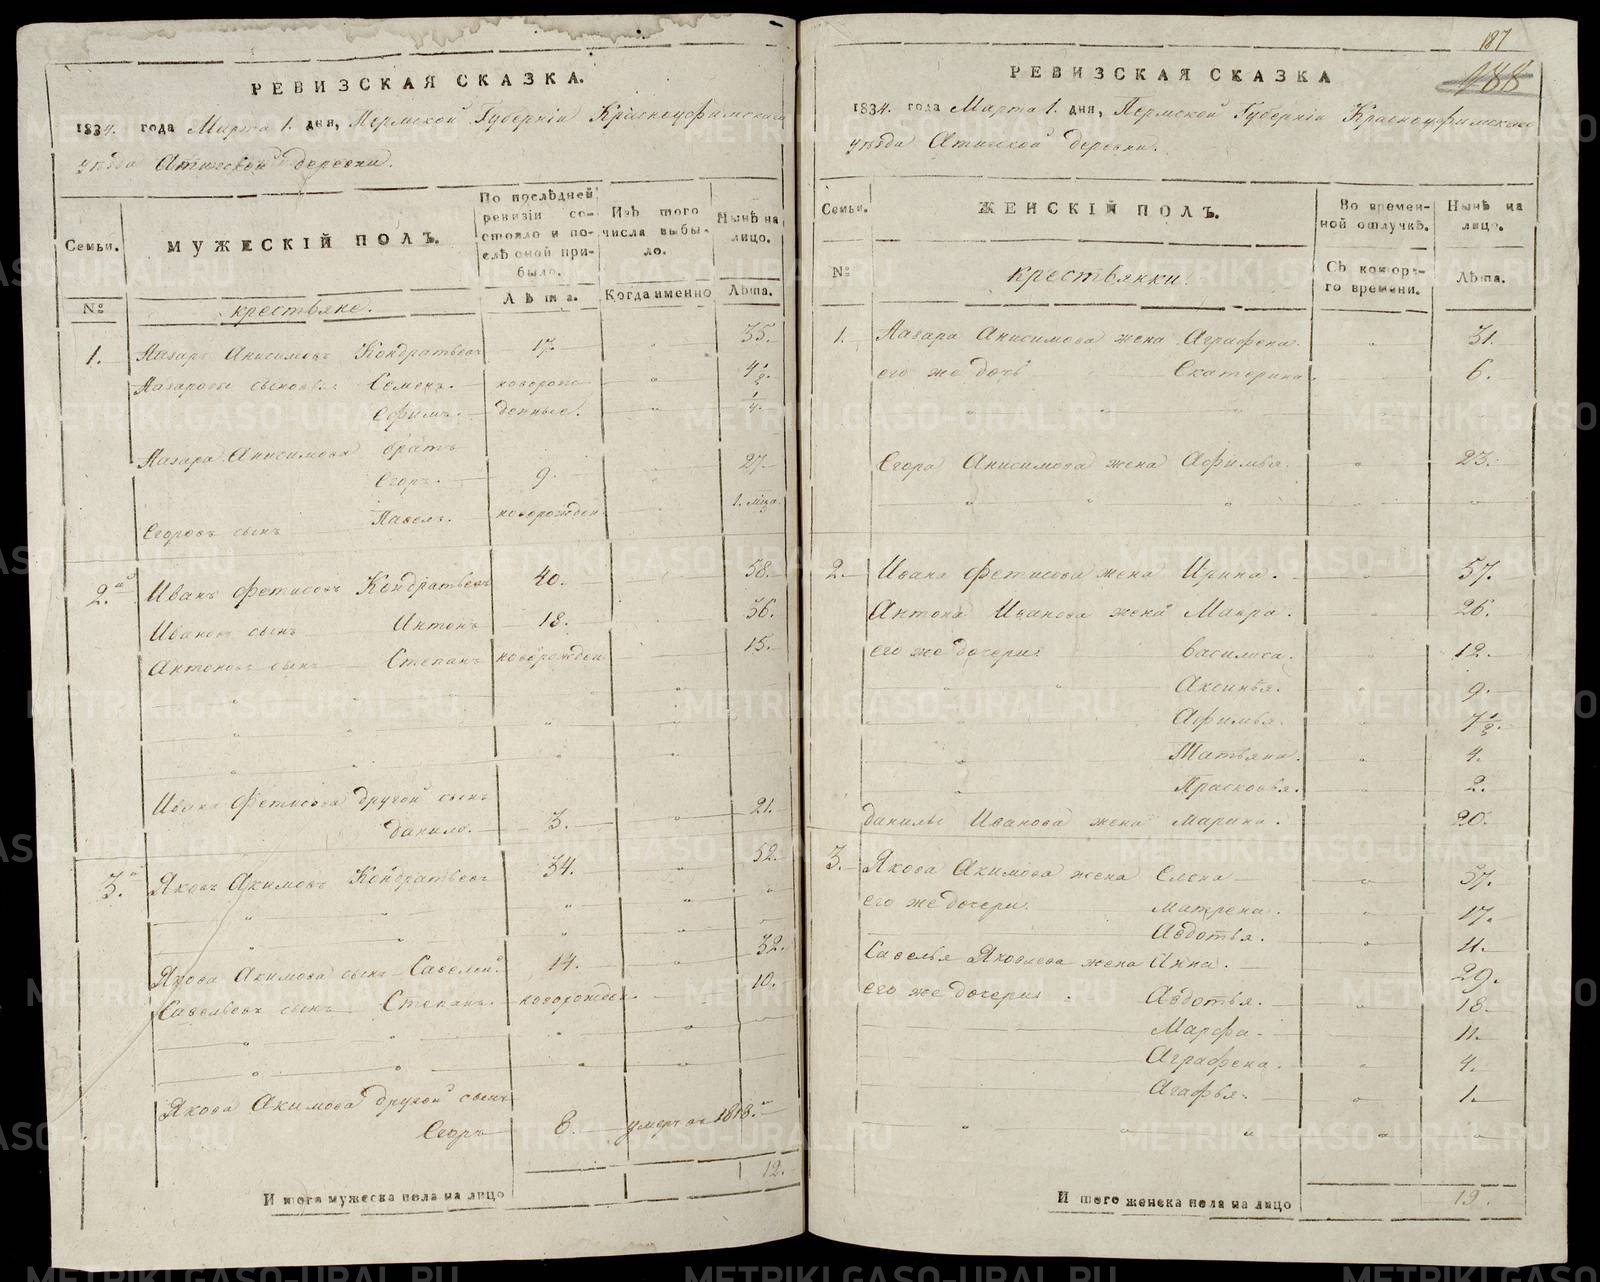 РЕВИЗСКАЯ СКАЗКА.
1834. года Марта 1. дня, Пермской Губернiи Красноуфимскаго
уѣзда Атигской деревни.
Семьи.
МУЖЕСКIЙ ПОЛЪ.
По послѣдней ревизiи состояло и послѣ оной прибыло.
Изъ того числа выбыло.
Нынѣ на лицо.
№
крестьяне.
Лѣта.
Когда именно
Лѣта.
1. Лазарь Анисимовъ Кондратьевъ 17. " 35.
Лазаровы сыновья Семенъ. новорож- " 4 1/2.
Ефимъ. денные. " 1/4.
Лазара Анисимова братъ
Егоръ. 9. 27.
Егоровъ сынъ Павелъ. новорожден 1. мѣсяц.
2. Иванъ Фетисовъ Кондратьевъ 40. 58.
Ивановъ сынъ Антонъ 18. 36.
Антоновъ сынъ Степанъ новорожден 15.
Ивана Фетисова другой сынъ
Данило. 3. " 21.
3. Яковъ Акимовъ Кондратьевъ 34. " 52.
Якова Акимова сынъ Савелий. 14. " 32.
Савельевъ сынъ Степанъ. новорожден. 10.
Якова Акимова другой сынъ
Егоръ 8. умеръ въ 1818.
12.
И того мужеска пола на лицо
187
188
РЕВИЗСКАЯ СКАЗКА
1834. года Марта 1. дня, Пермской Губернiи Красноуфимскаго
уѣзда Атигской деревни.
Семьи.
ЖЕНСКIЙ ПОЛЪ.
Во временной отлучкѣ.
Нынѣ на лицо.
№
крестьянки.
Съ котораго времени.
Лѣта.
1. Лазара Анисимова жена Аграфена. " 31.
его же дочь Екатерина. 6.
Егора Анисимова жена Афимья. " 23.
2. Ивана Фетисова жена Ирина. 57.
Антона Иванова жена Мавра. 26.
его же дочерии Василиса. 12.
Аксинья. 9.
Афимья. 7 1/2.
Татьяна. 4.
Прасковья. 2.
Данилы Иванова жена Марина. 20.
3. Якова Акимова жена Елена 57.
его же дочери Матрена. 17.
Авдотья. 11.
Савелья Яковлева жена Анна. 29.
его же дочерии Авдотья. 18.
Марфа. 11.
Аграфена. 4.
Агафья. 1.
И того женска пола на лицо 19.
METRIKI.GASO-URAL.RU